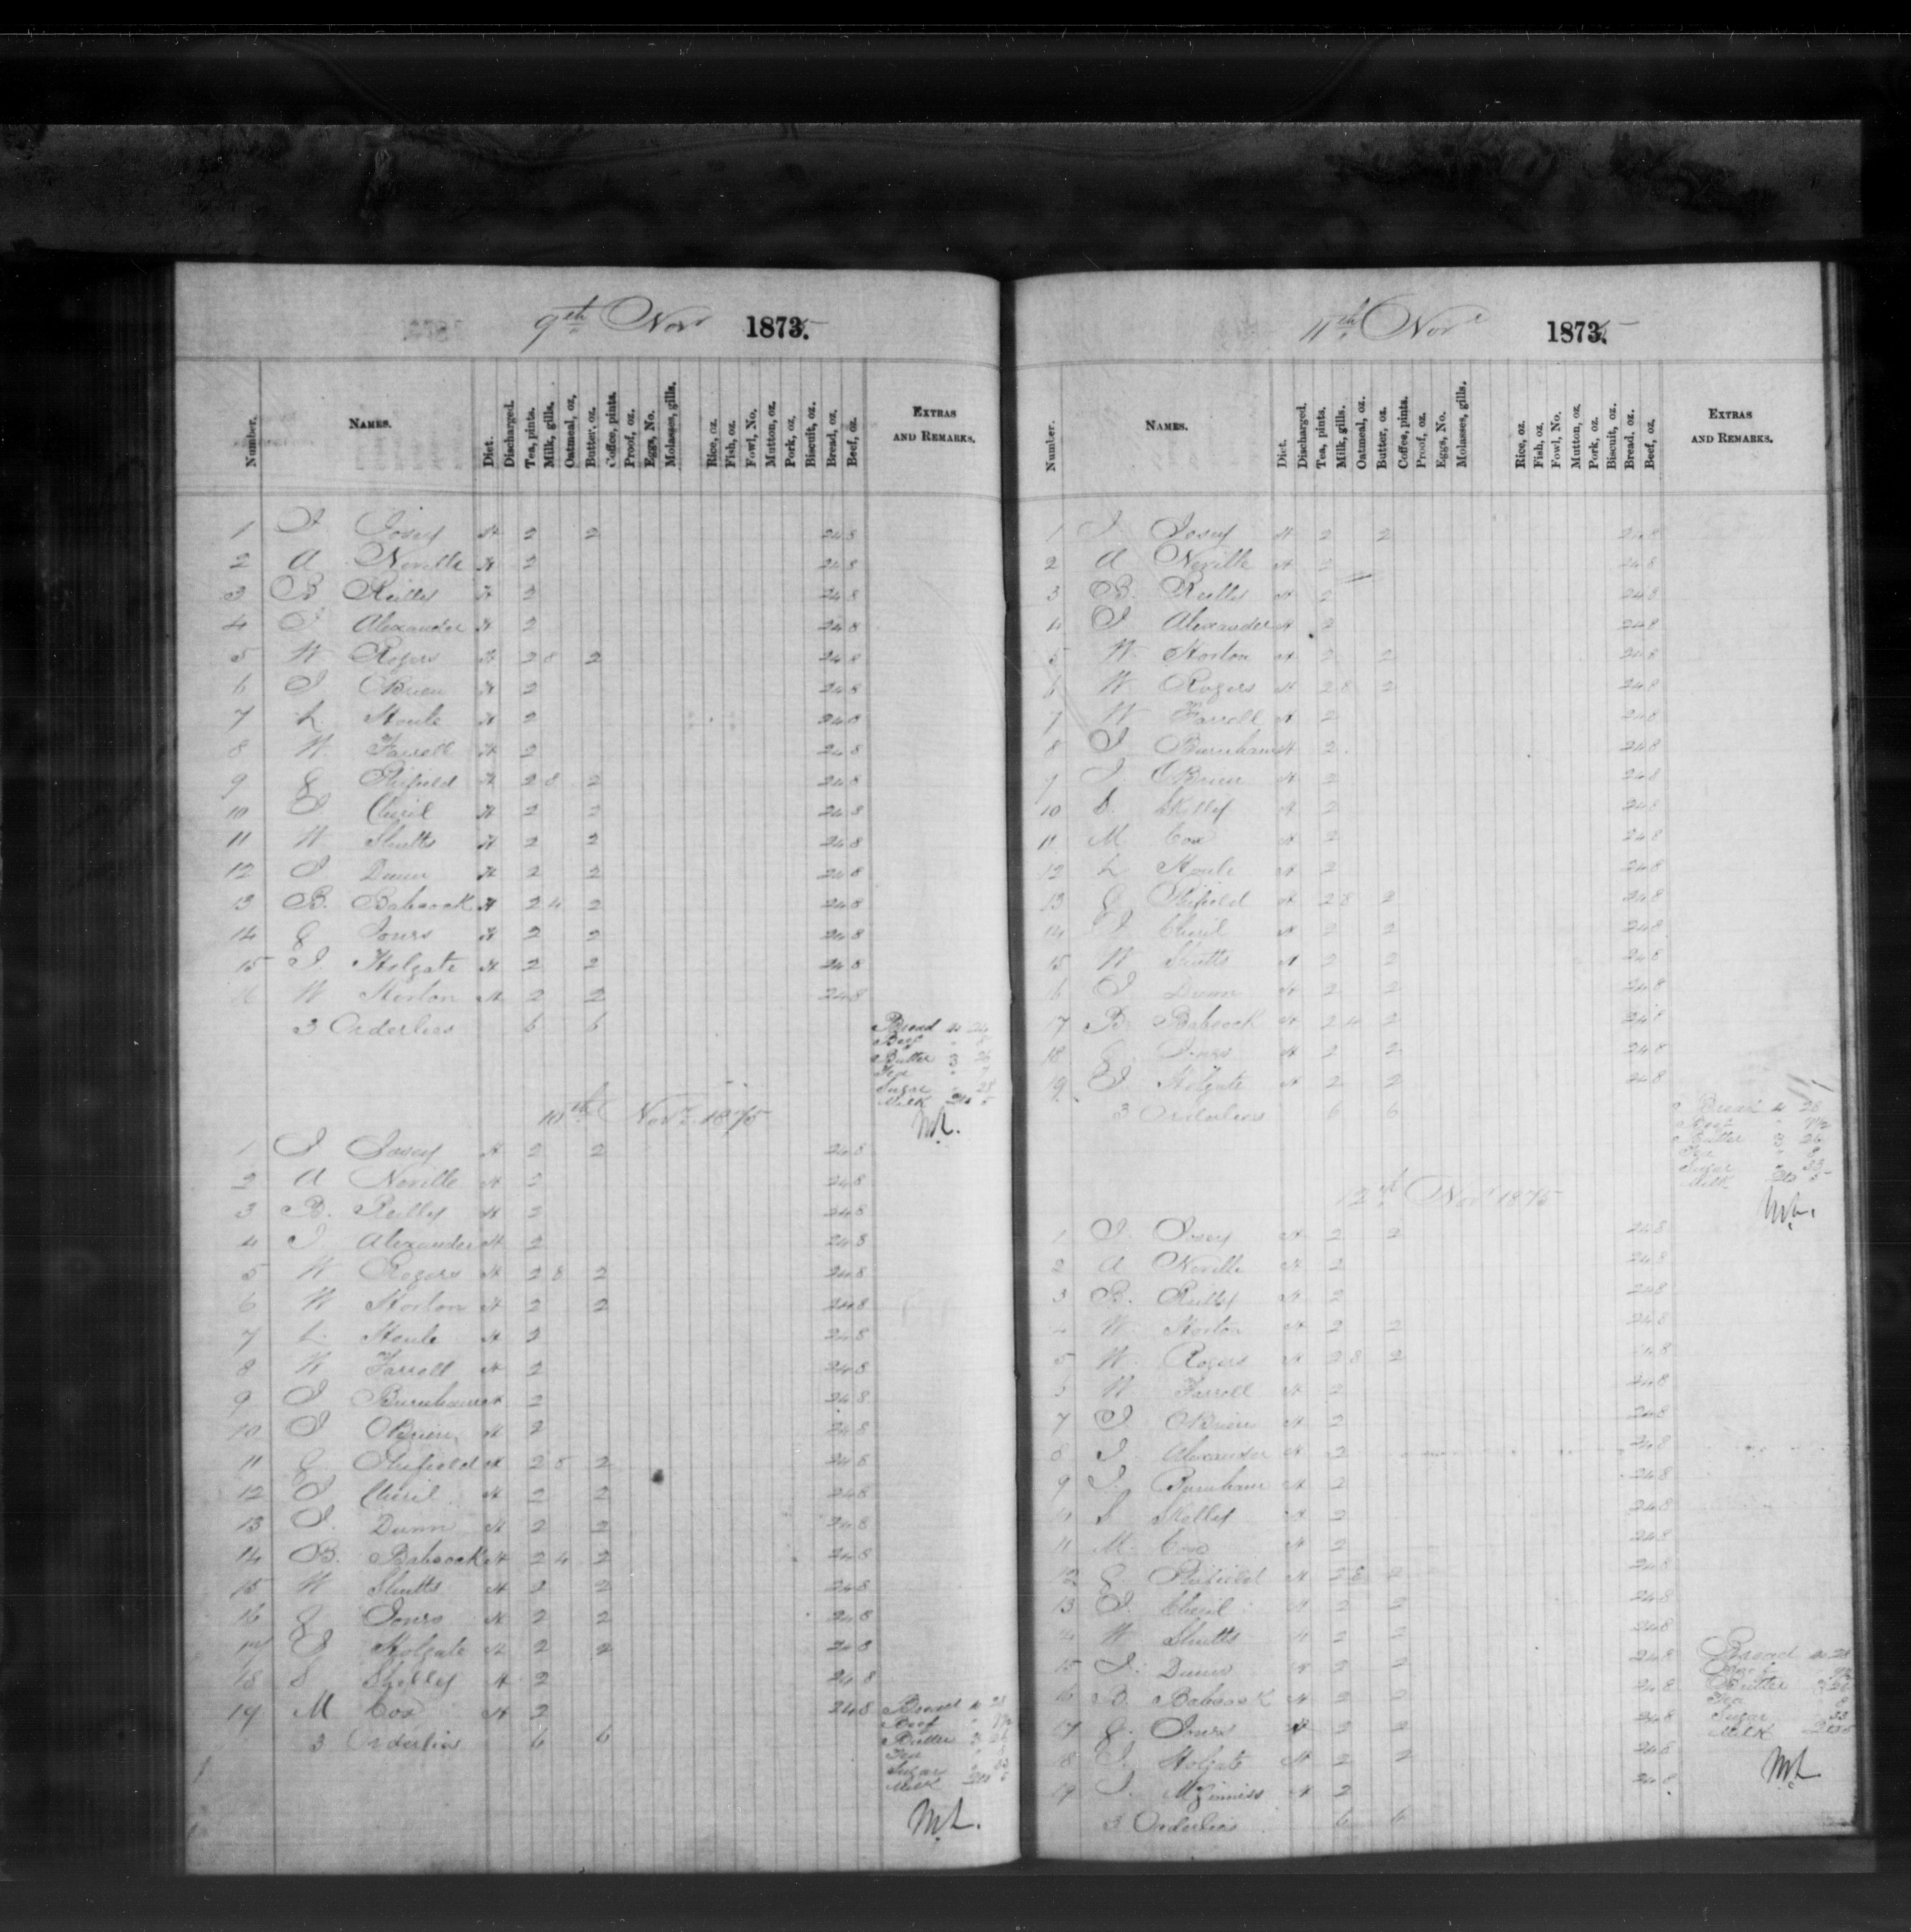 9th Novr 1875.
Number. NAMES. Diet. Discharged. Tea, pints. Milk, gills. Oatmeal, oz, Butter, oz. Coffee, pints. Proof, oz. Eggs, No. Molasses, gills. Rice, oz. Fish, oz. Fowl, No, Mutton, oz. Pork, oz, Biscuit, oz. Bread, oz. Beef, oz. EXTRAS AND REMARKS.
1 J Josey H 2 2 24 8
2 A Neville H 2 24 8
3 B Reilley H 2 24 8
4 J Alexander H 2 24 8
5 W Rogers H 2 8 2 24 8
6 J OBrien H 2 24 8
7 L Houle H 2 24 8
8 W Farrell H 2 24 8
9 G Fifield H 2 8 2 24 8
10 J Cheril H 2 2 24 8
11 W Shutts H 2 2 24 8
12 J Dunn H 2 2 24 8
13 B. Babcock H 2 4 2 24 8
14 G Jones H 2 2 24 8
15 J Holgate H 2 2 24 8
W Horton H 2 2 24 8
3 Orderlies 6 6
Bread 24
Beef " 8
Butter 3 26
Tea " 7
Sugar " 28
Milk 5
ML.
10th Novr 1875
1 J Josey H 2 2 24 8
2 A Neville H 2 24 8
3 B. Reilley H 2 24 8
4 J Alexander H 2 24 8
5 W Rogers H 2 8 2 24 8
6 W Horton H 2 2 24 8
7 L. Houle H 2 24 8
8 W Farrell H 2 24 8
9 J Burnham H 2 24 8
10 J OBrien H 2 24 8
11 G Fifield H 2 8 2 24 8
12 J Cheril H 2 2 24 8
13 J. Dunn H 2 2 24 8
14 B. Babcock H 2 4 2 24 8
15 W Shutts H 2 2 24 8
16 G Jones H 2 2 24 8
17 J Holgate H 2 2 24 8
18 S Skelley H 2 24 8
19 M Cox H 2 24 8
3 Orderlies 6 6
Bread 28
Beef " 9½
Butter 3 26
Tea " 8
Sugar " 33
Milk 5
ML.
11th Novr 1875
Number. NAMES. Diet. Discharged. Tea, pints. Milk, gills. Oatmeal, oz. Butter, oz. Coffee, pints. Proof, oz. Eggs, No. Molasses, gills. Rice, oz. Fish, oz Fowl, No. Mutton, oz, Pork, oz. Biscuit, oz. Bread, oz. Beef, oz. EXTRAS AND REMARKS.
1 J. Josey H 2 2 24 8
2 A Neville H 2 24 8
3 B. Reilley H 2 24 8
4 J Alexander H 2 24 8
5 W. Horton H 2 2 24 8
6 W Rogers H 2 8 2 24 8
7 W Farrell H 2 24 8
8 J Burnham H 2 24 8
9 J. OBrien H 2 24 8
10 S. Skelley H 2 24 8
11 M Cox H 2 24 8
12 L Houle H 2 24 8
13 G Fifield H 2 8 2 24 8
14 J Cheril H 2 2 24 8
15 W Shutts H 2 2 24 8
16 J Dunn H 2 2 24 8
17 B. Babcock H 2 4 2 24 8
18 G. Jones H 2 2 24 8
19 J Holgate H 2 2 24 8
3 Orderlies 6 6
Bread 28
Beef " 9½
Butter 3 26
Tea " 8
Sugar " 33
Milk 5
ML.
12th Novr 1875
1 J. Josey H 2 2 24 8
2 A Neville H 2 24 8
3 B. Reilley H 2 24 8
4 W Horton H 2 2 24 8
5 W. Rogers H 2 8 2 24 8
W Farrell H 2 24 8
7 J. OBrien H 2 24 8
8 J. Alexander H 2 24 8
9 J. Burnham H 2 24 8
S Skelley H 2 24 8
11 M. Cox H 2 24 8
12 G Fifield H 2 8 2 24 8
13 J. Cheril H 2 2 24 8
14 W Shutts H 2 2 24 8
15 J. Dunn H 2 2 24 8
16 B. Babcock H 2 2 24 8
17 G. Jones H 2 2 24 8
18 J. Holgate H 2 2 24 8
19 J. McGinniss H 2 24 8
3 Orderlies 6 6
Bread 28
Beef
Butter
Tea 8
Sugar 33
Milk
ML